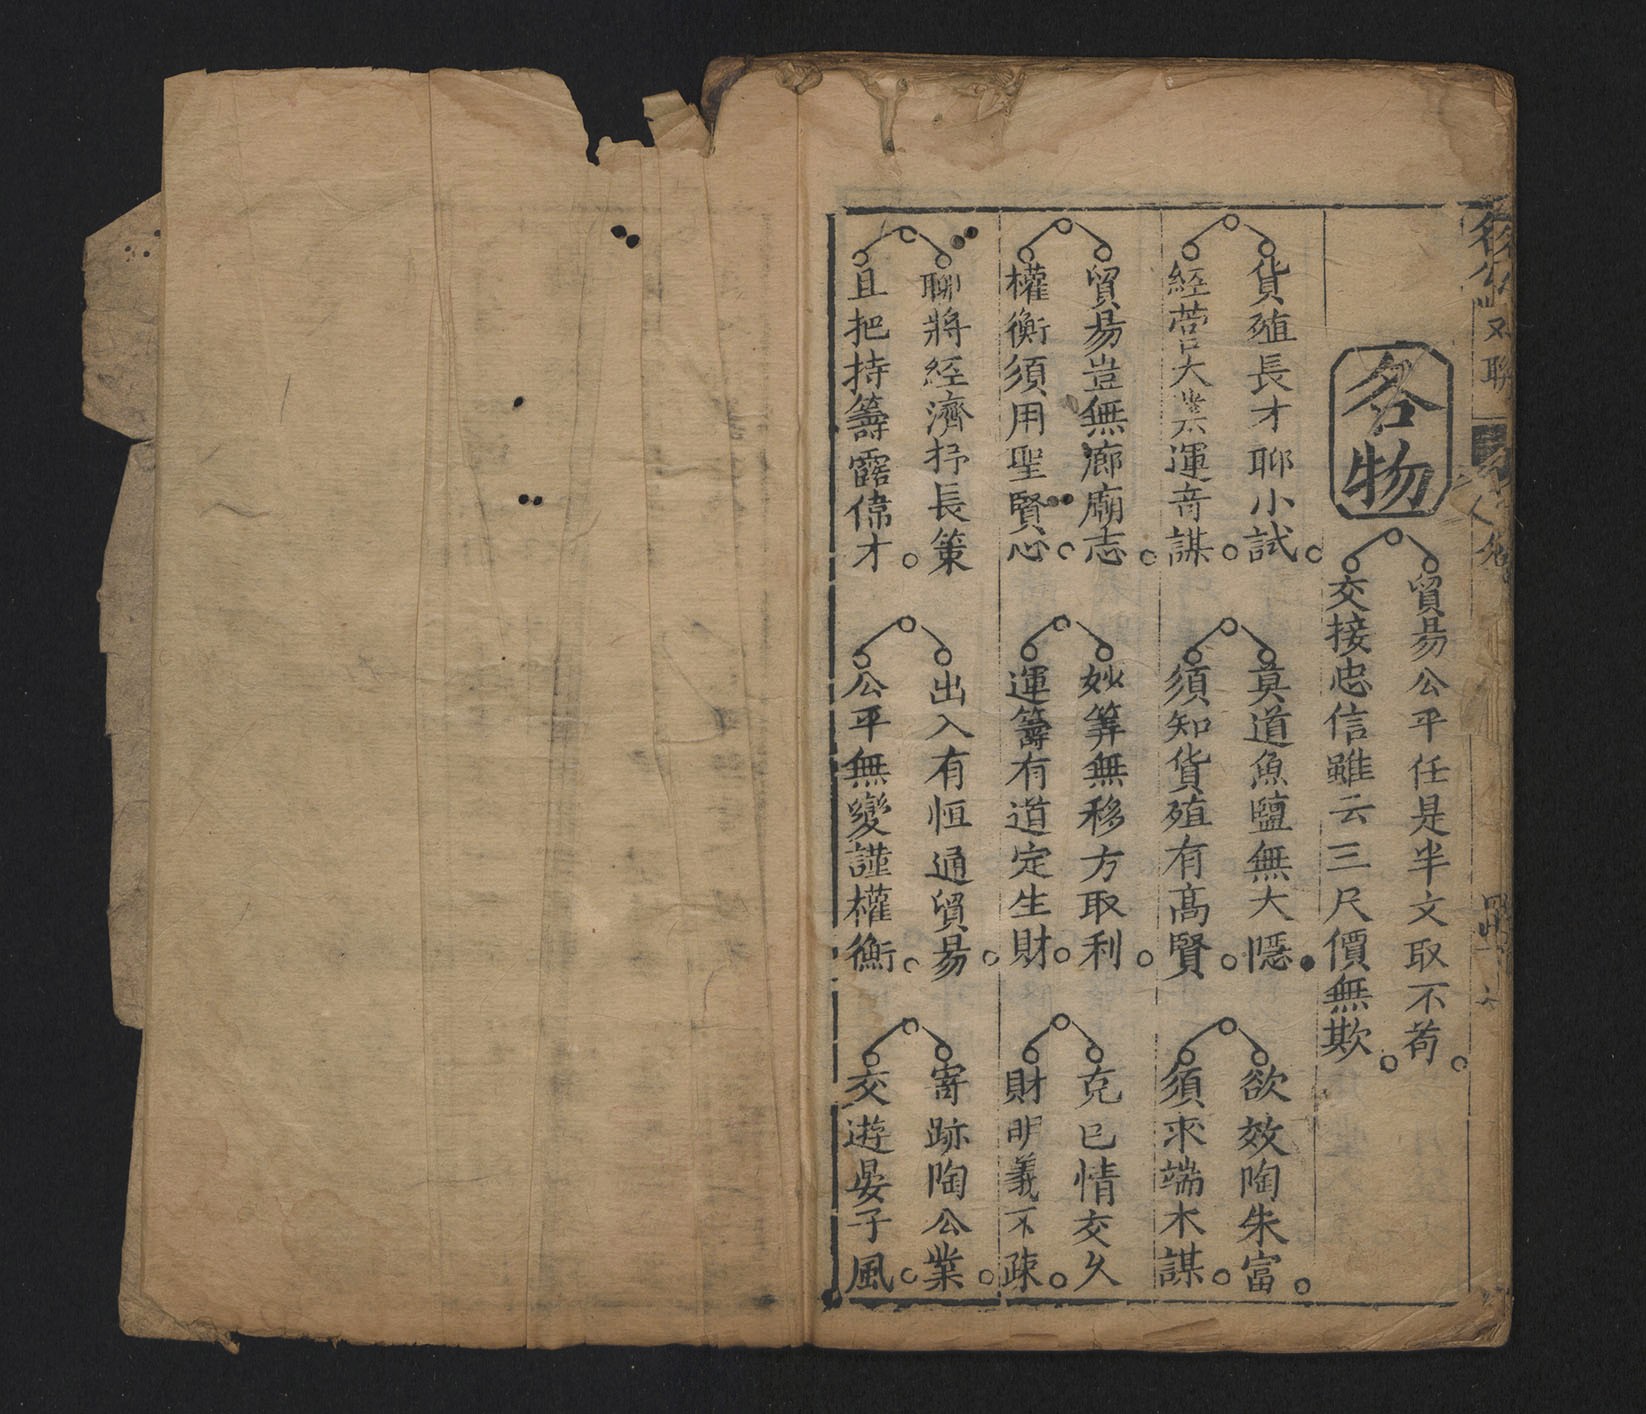 各物
貿易公平任是半文取不苟
交接忠信雖云三尺價無欺
貨殖長才聊小試
經營大業運奇謀
莫道魚鹽無大隱
須知貨殖有高賢
欲效陶朱富
須求端木謀
貿易豈無廊廟志
權衡須用聖賢心
妙筭無移方取利
運籌有道定生財
克己情交久
財明義不疎
聊將經濟抒長策
且把持籌露偉才
出入有恒通貿易
公平無變謹權衡
寄跡陶公業
交遊晏子風